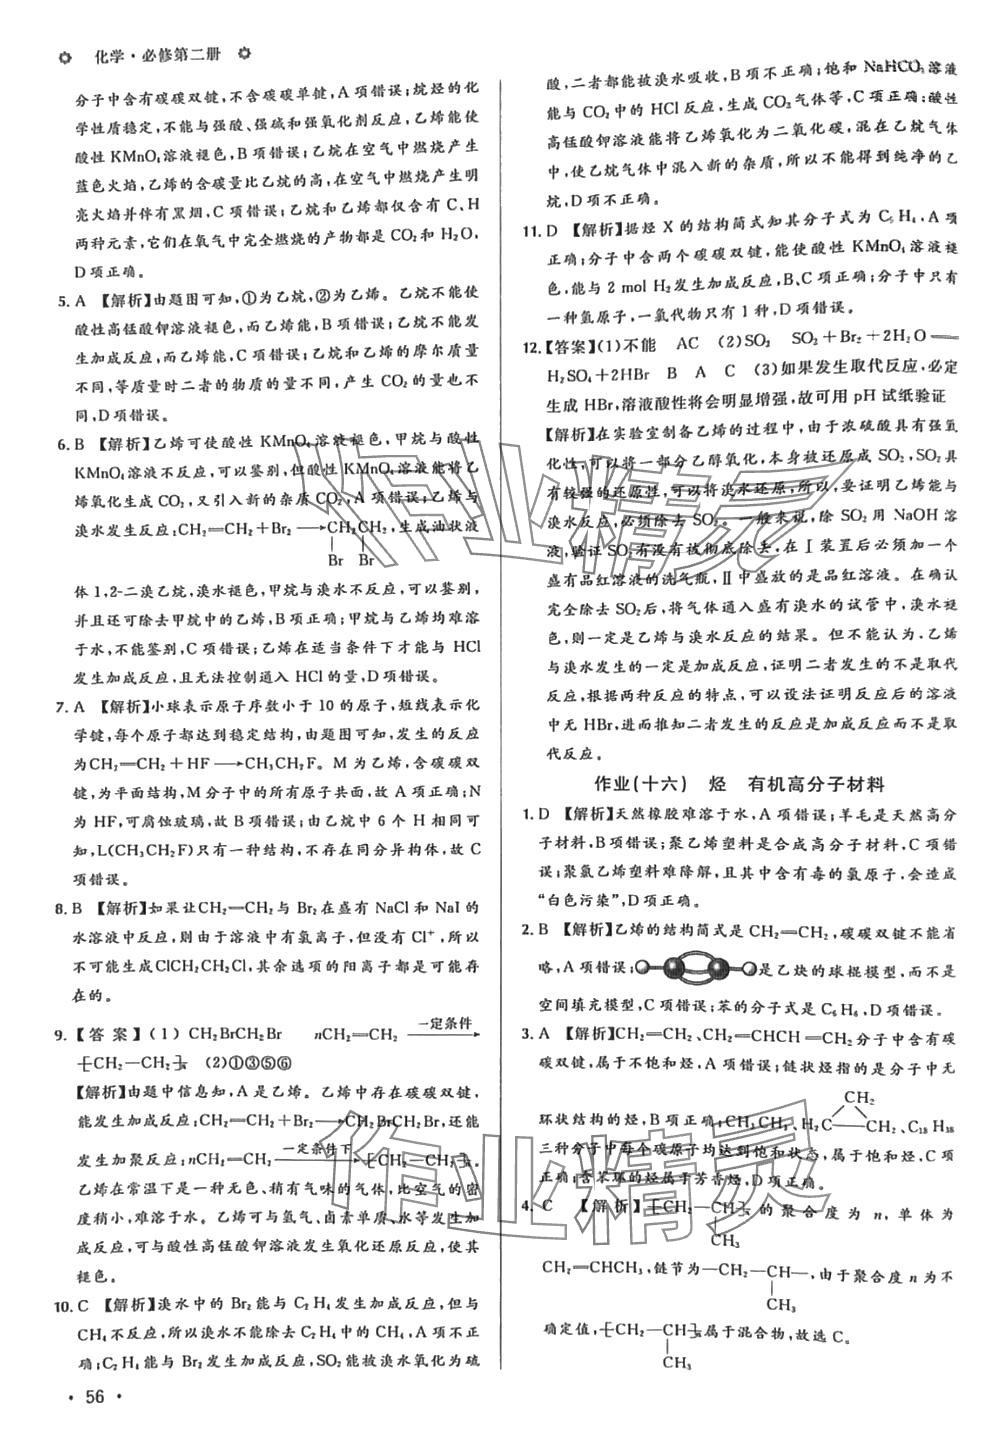 化学·必修第二册
分子中含有碳碳双键,不含碳碳单键,A项错误;烷烃的化
学性质稳定,不能与强酸、强碱和强氧化剂反应,乙烯能使
酸性KMnO₄溶液褪色,B项错误;乙烷在空气中燃烧产生
蓝色火焰,乙烯的含碳量比乙烷的高,在空气中燃烧产生明
亮火焰并伴有黑烟,C项错误;乙烷和乙烯都仅含有C、H
两种元素,它们在氧气中完全燃烧的产物都是CO₂和H₂O,
D项正确。
5. A 【解析】由题图可知,①为乙烷,②为乙烯。乙烷不能使
酸性高锰酸钾溶液褪色,而乙烯能,B项错误;乙烷不能发
生加成反应,而乙烯能,C项错误;乙烷和乙烯的摩尔质量
不同,等质量时二者的物质的量不同,产生CO₂的量也不
同,D项错误。
6. B 【解析】乙烯可使酸性KMnO₄溶液褪色,甲烷与酸性
KMnO₄溶液不反应,可以鉴别,但酸性KMnO₄溶液能将乙
烯氧化生成CO₂,又引入新的杂质CO₂,A项错误;乙烯与
溴水发生反应:CH₂=CH₂+Br₂⟶CH₂CH₂,生成油状液
Br Br
体1,2-二溴乙烷,溴水褪色,甲烷与溴水不反应,可以鉴别,
并且还可除去甲烷中的乙烯,B项正确;甲烷与乙烯均难溶
于水,不能鉴别,C项错误;乙烯在适当条件下才能与HCl
发生加成反应,且无法控制通入HCl的量,D项错误。
7. A 【解析】小球表示原子序数小于10的原子,短线表示化
学键,每个原子都达到稳定结构,由题图可知,发生的反应
为CH₂=CH₂+HF⟶CH₃CH₂F。M为乙烯,含碳碳双
键,为平面结构,M分子中的所有原子共面,故A项正确;N
为HF,可腐蚀玻璃,故B项错误;由乙烷中6个H相同可
知,L(CH₃CH₂F)只有一种结构,不存在同分异构体,故C
项错误。
8. B 【解析】如果让CH₂=CH₂与Br₂在盛有NaCl和NaI的
水溶液中反应,则由于溶液中有氯离子,但没有Cl⁺,所以
不可能生成ClCH₂CH₂Cl,其余选项的阳离子都是可能存
在的。
9. 【答案】(1)CH₂BrCH₂Br nCH₂=CH₂ 一定条件⟶
⁅CH₂—CH₂⁆ₙ (2)①③⑤⑥
【解析】由题中信息知,A是乙烯。乙烯中存在碳碳双键,
能发生加成反应:CH₂=CH₂+Br₂⟶CH₂BrCH₂Br,还能
发生加聚反应:nCH₂=CH₂ 一定条件下⟶ ⁅CH₂—CH₂⁆ₙ。
乙烯在常温下是一种无色、稍有气味的气体,比空气的密
度稍小,难溶于水。乙烯可与氢气、卤素单质、水等发生加
成反应,可与酸性高锰酸钾溶液发生氧化还原反应,使其
褪色。
10. C 【解析】溴水中的Br₂能与C₂H₄发生加成反应,但与
CH₄不反应,所以溴水不能除去C₂H₄中的CH₄,A项不正
确;C₂H₄能与Br₂发生加成反应,SO₂能被溴水氧化为硫
· 56 ·
酸,二者都能被溴水吸收,B项不正确;饱和NaHCO₃溶液
能与CO₂中的HCl反应,生成CO₂气体等,C项正确;酸性
高锰酸钾溶液能将乙烯氧化为二氧化碳,混在乙烷气体
中,使乙烷气体中混入新的杂质,所以不能得到纯净的乙
烷,D项不正确。
11. D 【解析】据烃X的结构简式知其分子式为C₅H₄,A项
正确;分子中含两个碳碳双键,能使酸性KMnO₄溶液褪
色,能与2 mol H₂发生加成反应,B、C项正确;分子中只有
一种氢原子,一氯代物只有1种,D项错误。
12. 【答案】(1)不能 AC (2)SO₂ SO₂+Br₂+2H₂O=
H₂SO₄+2HBr B A C (3)如果发生取代反应,必定
生成HBr,溶液酸性将会明显增强,故可用pH试纸验证
【解析】在实验室制备乙烯的过程中,由于浓硫酸具有强氧
化性,可以将一部分乙醇氧化,本身被还原成SO₂,SO₂具
有较强的还原性,可以将溴水还原,所以,要证明乙烯能与
溴水反应,必须除去SO₂。一般来说,除SO₂用NaOH溶
液,验证SO₂有没有被彻底除去,在Ⅰ装置后必须加一个
盛有品红溶液的洗气瓶,Ⅱ中盛放的是品红溶液。在确认
完全除去SO₂后,将气体通入盛有溴水的试管中,溴水褪
色,则一定是乙烯与溴水反应的结果。但不能认为,乙烯
与溴水发生的一定是加成反应,证明二者发生的不是取代
反应,根据两种反应的特点,可以设法证明反应后的溶液
中无HBr,进而推知二者发生的反应是加成反应而不是取
代反应。
作业(十六) 烃 有机高分子材料
1. D 【解析】天然橡胶难溶于水,A项错误;羊毛是天然高分
子材料,B项错误;聚乙烯塑料是合成高分子材料,C项错
误;聚氯乙烯塑料难降解,且其中含有毒的氯原子,会造成
“白色污染”,D项正确。
2. B 【解析】乙烯的结构简式是CH₂=CH₂,碳碳双键不能省
略,A项错误;是乙炔的球棍模型,而不是
空间填充模型,C项错误;苯的分子式是C₆H₆,D项错误。
3. A 【解析】CH₂=CH₂、CH₂=CHCH=CH₂分子中含有碳
碳双键,属于不饱和烃,A项错误;链状烃指的是分子中无
CH₂
环状结构的烃,B项正确;CH₃CH₃、H₂C—CH₂、C₁₈H₃₈
三种分子中每个碳原子均达到饱和状态,属于饱和烃,C项
正确;含苯环的烃属于芳香烃,D项正确。
4. C 【解析】⁅CH₂—CH⁆ₙ的聚合度为n,单体为
CH₃
CH₂=CHCH₃,链节为—CH₂—CH—,由于聚合度n为不
CH₃
确定值,⁅CH₂—CH⁆ₙ属于混合物,故选C。
CH₃
作业精灵
作业精灵